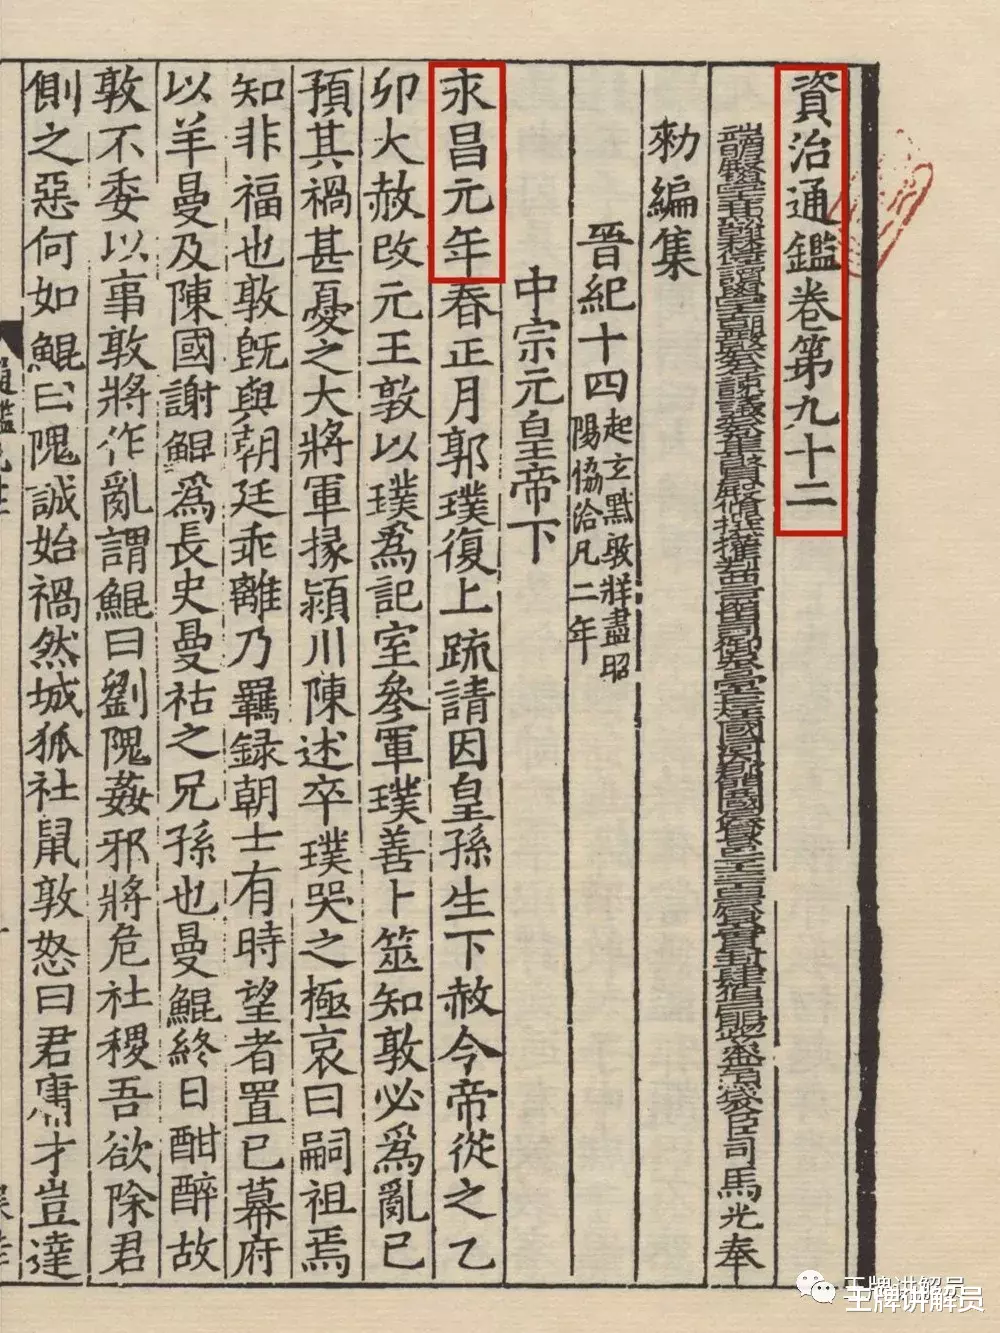 資治通鑑卷第九十二
端明殿學士兼翰林侍讀學士朝散大夫右諫議大夫充集賢殿脩撰權判西京留司御史臺上柱國河內郡開國侯食邑一千三百戶食實封肆伯戶賜紫金魚袋臣司馬光奉
勑編集
晉紀十四 起玄黓敦牂盡昭
陽協洽凡二年
中宗元皇帝下
永昌元年春正月郭璞復上疏請因皇孫生下赦令帝從之乙
卯大赦改元王敦以璞爲記室參軍璞善卜筮知敦必爲亂己
預其禍甚憂之大將軍掾潁川陳述卒璞哭之極哀曰嗣祖焉
知非福也敦旣與朝廷乖離乃羈録朝士有時望者置己幕府
以羊曼及陳國謝鯤爲長史曼祜之兄孫也曼鯤終日酣醉故
敦不委以事敦將作亂謂鯤曰劉隗姦邪將危社稷吾欲除君
側之惡何如鯤曰隗誠始禍然城狐社鼠敦怒曰君庸才豈達
王牌讲解员
王牌讲解员